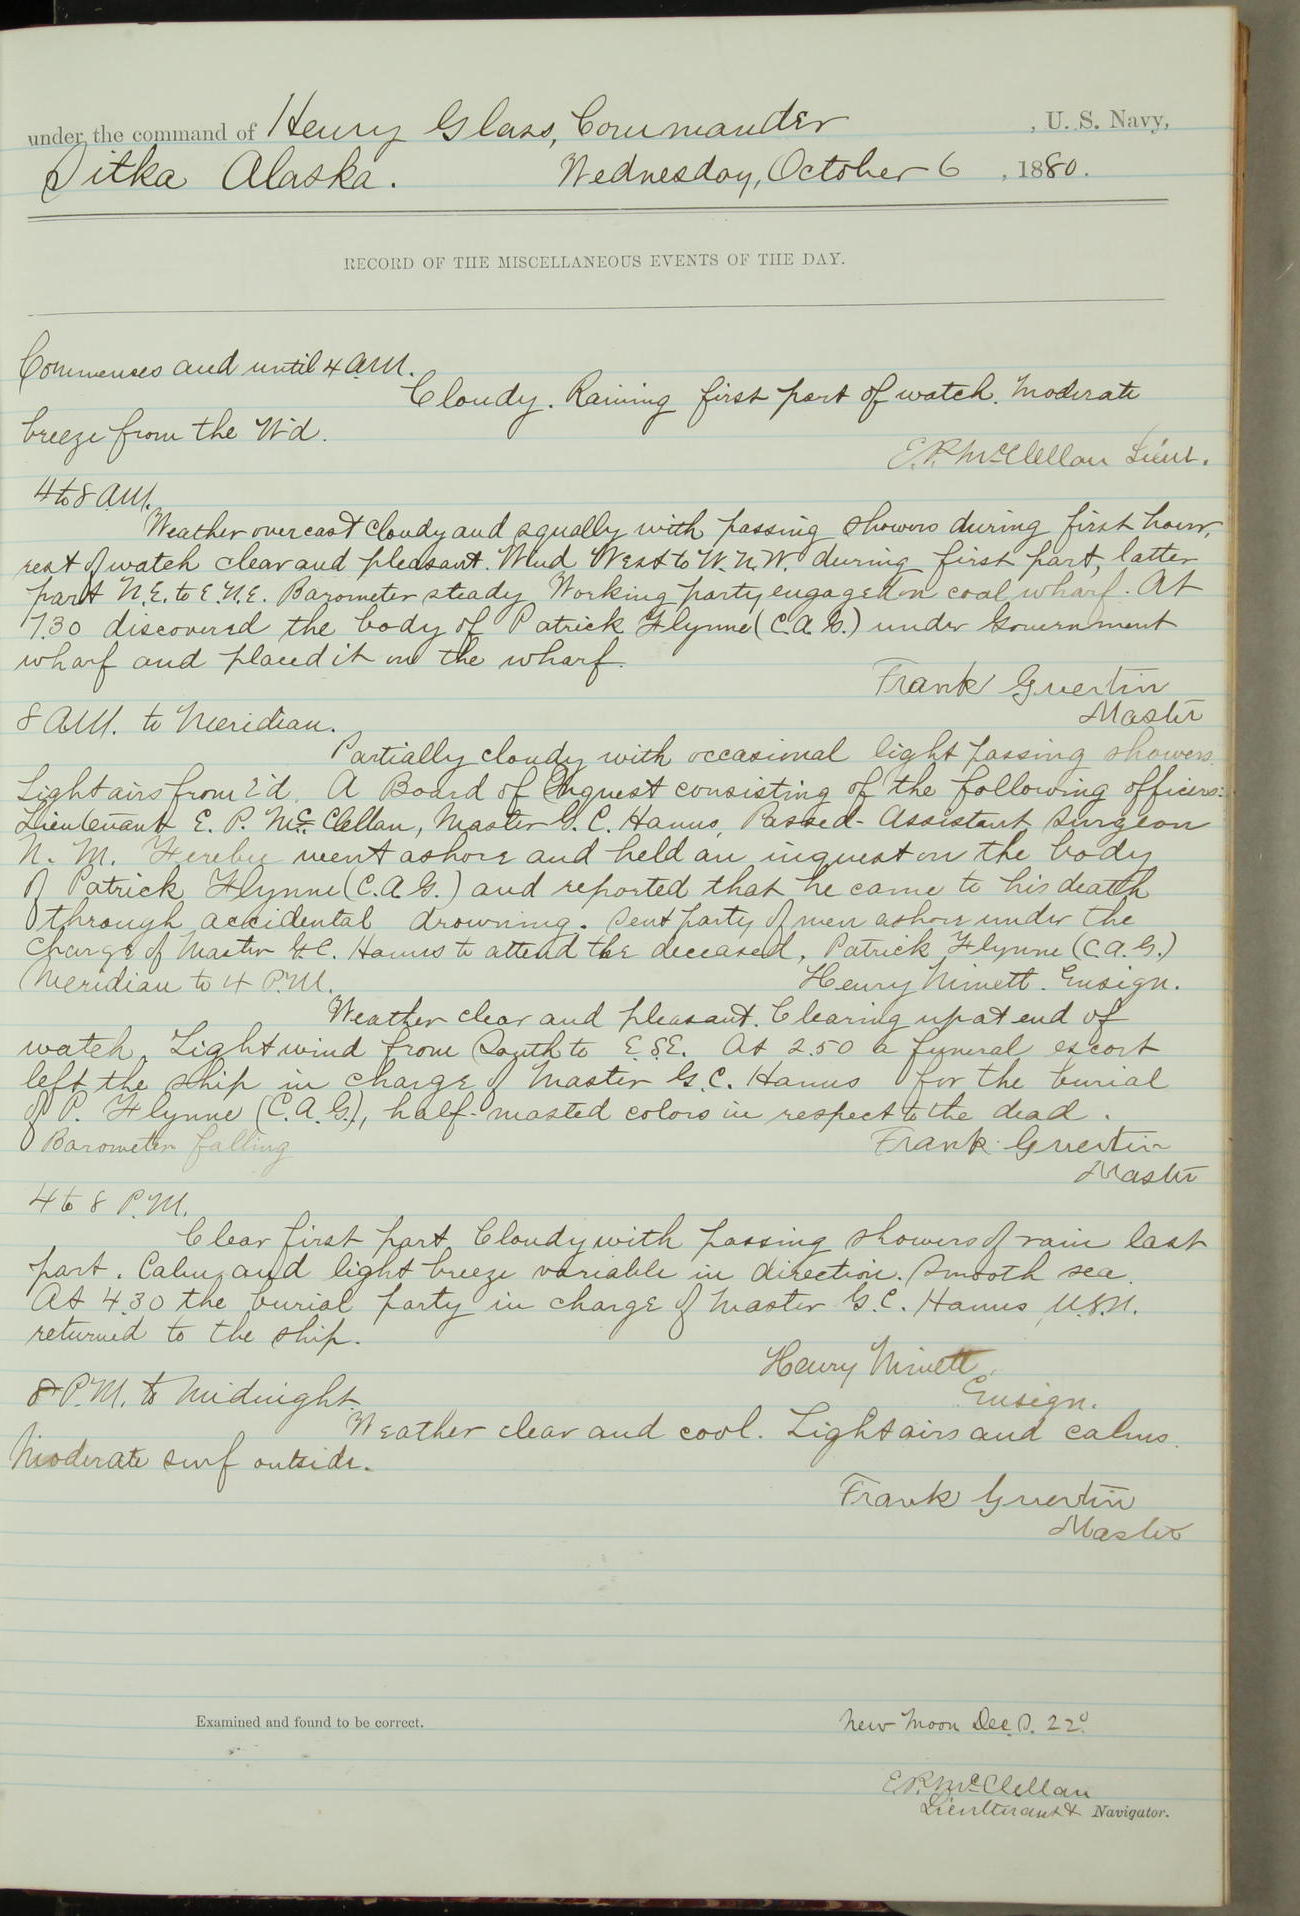 under the command of Henry Glass, Commander , U. S. Navy,
Sitka Alaska. Wednesday, October 6 , 1880.
RECORD OF THE MISCELLANEOUS EVENTS OF THE DAY.
Commences and until 4 A.M.
Cloudy. Raining first part of watch. Moderate
breeze from the W'd.
E.P. McClellan Lieut.
4 to 8 A.M.
Weather overcast cloudy and squally with passing showers during first hour,
rest of watch clear and pleasant. Wind West to W.N.W. during first part, latter
part N.E. to E.N.E. Barometer steady Working party engaged on coal wharf. At
7.30 discovered the body of Patrick Flynne (C.A.G.) under Government
wharf and placed it on the wharf.
Frank Guertin
Master
8 A.M. to Meridian.
Partially cloudy with occasional light passing showers.
Light airs from E'd. A Board of Inquest consisting of the following officers:
Lieutenant E. P. McClellan, Master G. C. Hanus, Passed-Assistant Surgeon
N. M. Ferebee went ashore and held an inquest on the body
of Patrick Flynne (C.A.G.) and reported that he came to his death
through accidental drowning. Sent party of men ashore under the
charge of Master G.C. Hanus to attend the deceased, Patrick Flynne (C.A.G.)
Meridian to 4 P.M. Henry Minett. Ensign.
Weather clear and pleasant. Clearing up at end of
watch. Light wind from South to E.S.E. At 2.50 a funeral escort
left the ship in charge of Master G.C. Hanus for the burial
of P. Flynne (C.A.G.), half-masted colors in respect to the dead.
Barometer falling Frank Guertin
Master
4 to 8 P.M.
Clear first part Cloudy with passing showers of rain last
part. Calm, and light breeze variable in direction. Smooth sea.
At 4.30 the burial party in charge of Master G.C. Hanus, U.S.N.
returned to the ship.
Henry Minett,
Ensign.
8 P.M. to Midnight.
Weather clear and cool. Light airs and calms.
Moderate surf outside.
Frank Guertin
Master
Examined and found to be correct. New Moon Dec. S. 22°
E.P. McClellan
Lieutenant & Navigator.